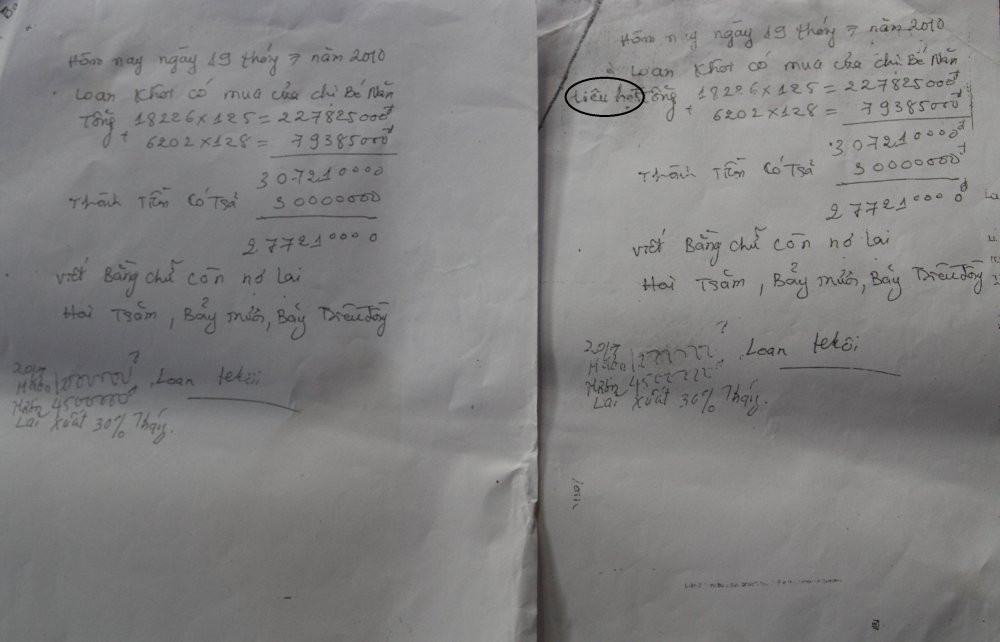 Hôm nay ngày 19 tháng 7 năm 2010
Loan Khơi có mua của chị Bé Năm
Tổng 18226 x 125 = 227825000đ
+ 6202 x 128 = 79385000đ
307210000
Thành Tiền Có Trả 30000000
277210000
viết Bằng chữ còn nợ lai
Hai Trăm, Bảy mươi, Bảy Triệu đồng
2017
Loan tekôi
Lai xuất 30% Tháng.
Hôm nay ngày 19 tháng 7 năm 2010
Loan Khơi có mua của chị Bé Năm
tiêu hột Tổng 18226 x 125 = 227825000đ
+ 6202 x 128 = 79385000đ
307210000đ
Thành Tiền Có Trả 30000000đ
277210000đ
viết Bằng chữ còn nợ lai
Hai Trăm, Bảy mươi, Bảy Triệu đồng
2017
Loan tekôi
Lai xuất 30% Tháng.